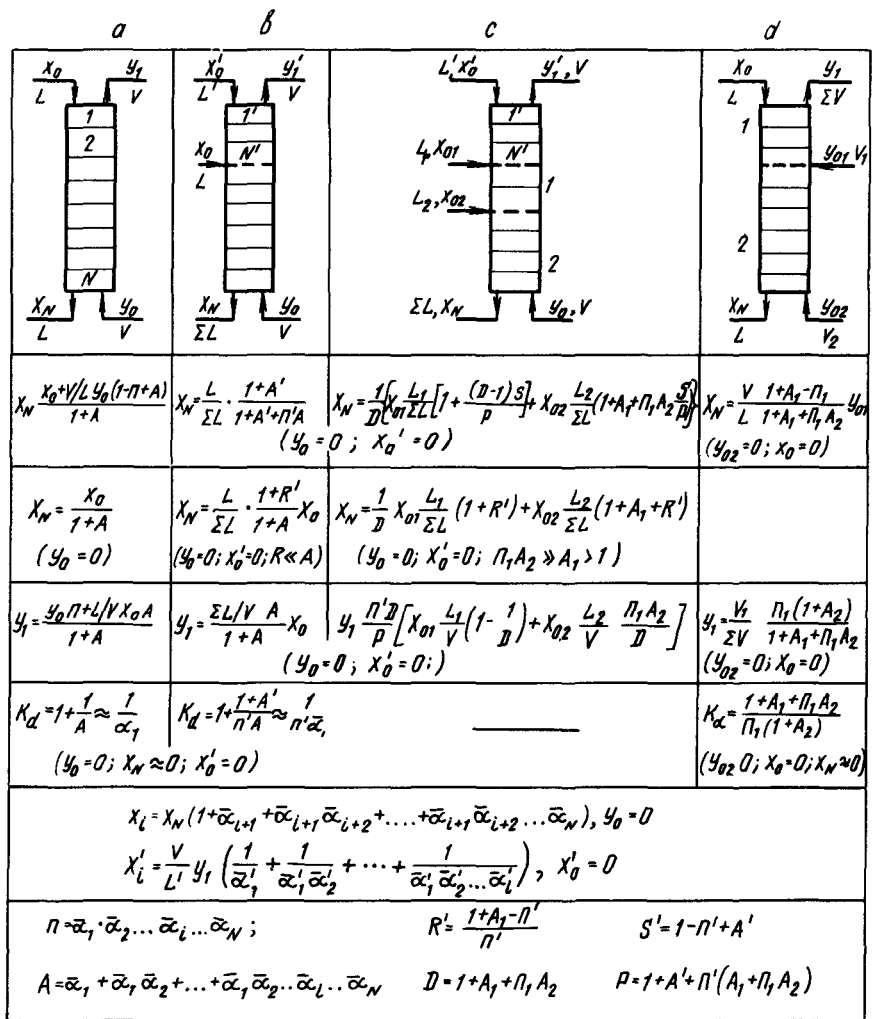 a b c d
X₀ L y₁ V 1 2 N X_N L y₀ V
X₀' L' y₁' V 1' X₀ L N' X_N ΣL y₀ V
L', X₀' y₁', V 1' L₁, X₀₁ N' 1 L₂, X₀₂ 2 ΣL, X_N y₀, V
X₀ L y₁ ΣV 1 y₀₁ V₁ 2 X_N L y₀₂ V₂
X_N (X₀+V/L y₀(1-п+A))/(1+A)
X_N = L/ΣL · (1+A')/(1+A'+П'A)
X_N = 1/D {X₀₁ L₁/ΣL [1+ (D-1)S/p] + X₀₂ L₂/ΣL (1+A₁+П₁A₂ S/p)}
(y₀=0; X₀'=0)
X_N = V/L (1+A₁-П₁)/(1+A₁+П₁A₂) y₀₁
(y₀₂=0; x₀=0)
X_N = X₀/(1+A)
(y₀=0)
X_N = L/ΣL · (1+R')/(1+A) X₀
(y₀=0; X₀'=0; R≪A)
X_N = 1/D X₀₁ L₁/ΣL (1+R') + X₀₂ L₂/ΣL (1+A₁+R')
(y₀=0; X₀'=0; П₁A₂ ≫ A₁ > 1)
y₁ = (y₀П+L/V X₀A)/(1+A)
y₁ = (ΣL/V A)/(1+A) X₀
y₁ П'D/p [X₀₁ L₁/V (1- 1/D) + X₀₂ L₂/V П₁A₂/D]
(y₀=0; X₀'=0;)
y₁ = V₁/ΣV П₁(1+A₂)/(1+A₁+П₁A₂)
(y₀₂=0; X₀=0)
K_d = 1+ 1/A ≈ 1/α₁
K_d = 1+ (1+A')/(п'A) ≈ 1/(п'ᾱ₁)
(y₀=0; X_N≈0; X₀'=0)
K_α = (1+A₁+П₁A₂)/(П₁(1+A₂))
(y₀₂ 0; X₀=0; X_N≈0)
x_i = X_N (1+ᾱ_{i+1}+ᾱ_{i+1}ᾱ_{i+2}+....+ᾱ_{i+1}ᾱ_{i+2}...ᾱ_N), y₀=0
X_i' = V/L' y₁ (1/ᾱ₁' + 1/(ᾱ₁'ᾱ₂') + ··· + 1/(ᾱ₁'ᾱ₂'...ᾱ_i')), X₀'=0
п=ᾱ₁·ᾱ₂...ᾱ_i...ᾱ_N; R' = (1+A₁-П')/П' S'=1-П'+A'
A=ᾱ₁+ᾱ₁ᾱ₂+...+ᾱ₁ᾱ₂..ᾱ_i..ᾱ_N D=1+A₁+П₁A₂ P=1+A'+П'(A₁+П₁A₂)